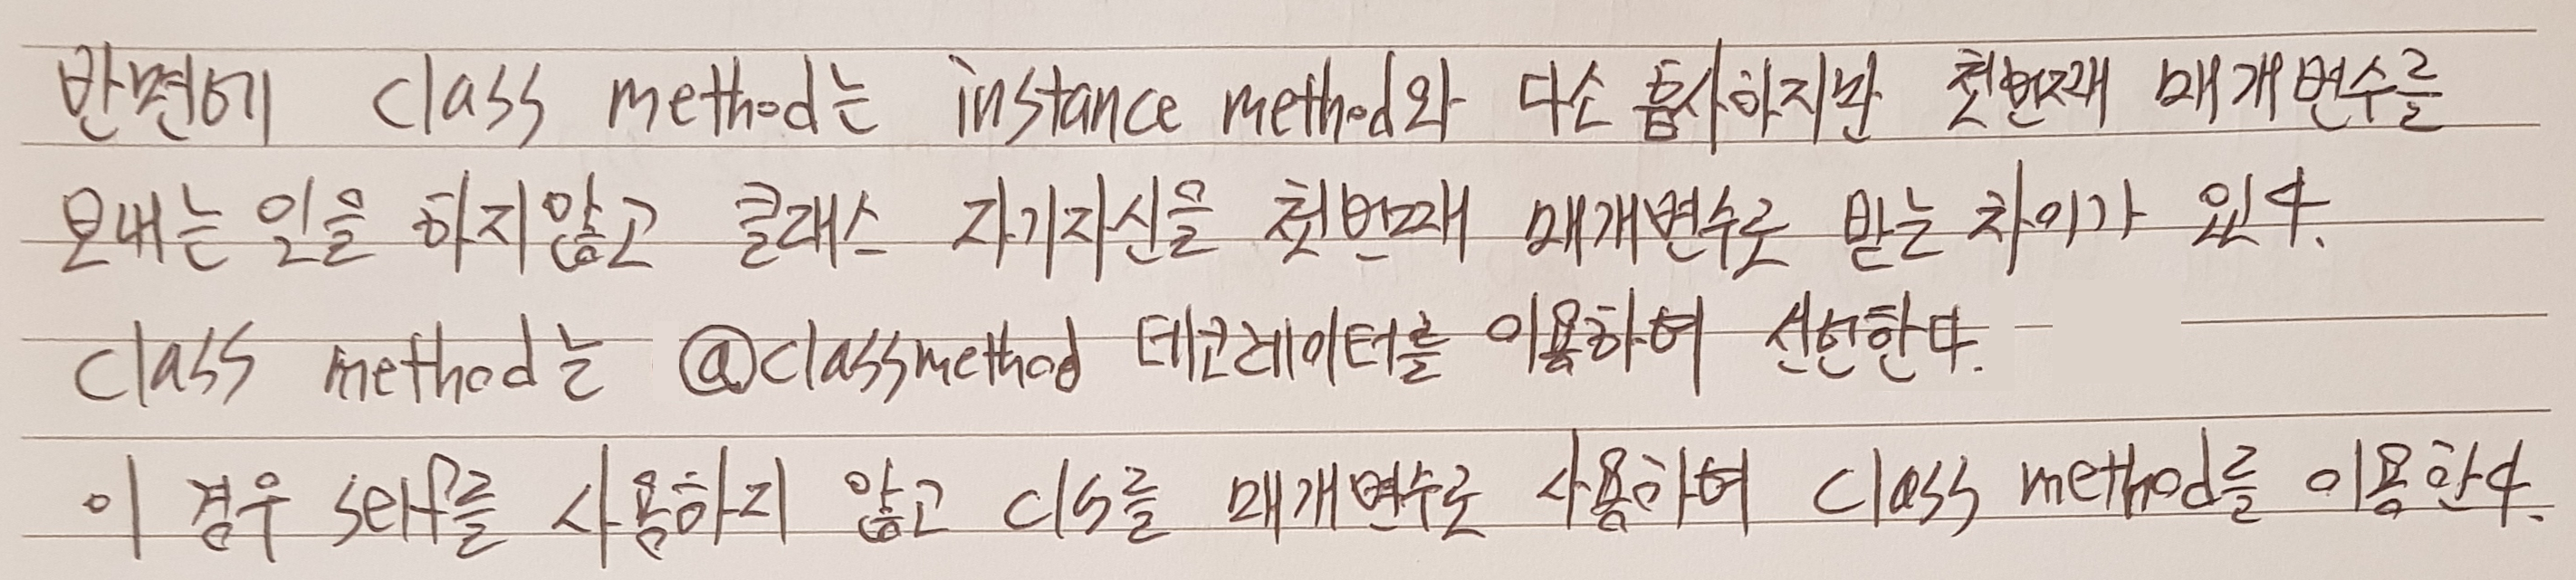 반면에 class method는 instance method와 다소 흡사하지만 첫번째 매개변수를
보내는 일을 하지않고 클래스 자기자신을 첫번째 매개변수로 받는 차이가 있다.
class method는 @classmethod 데코레이터를 이용하여 선언한다.
이 경우 self를 사용하지 않고 cls를 매개변수로 사용하여 class method를 이용한다.